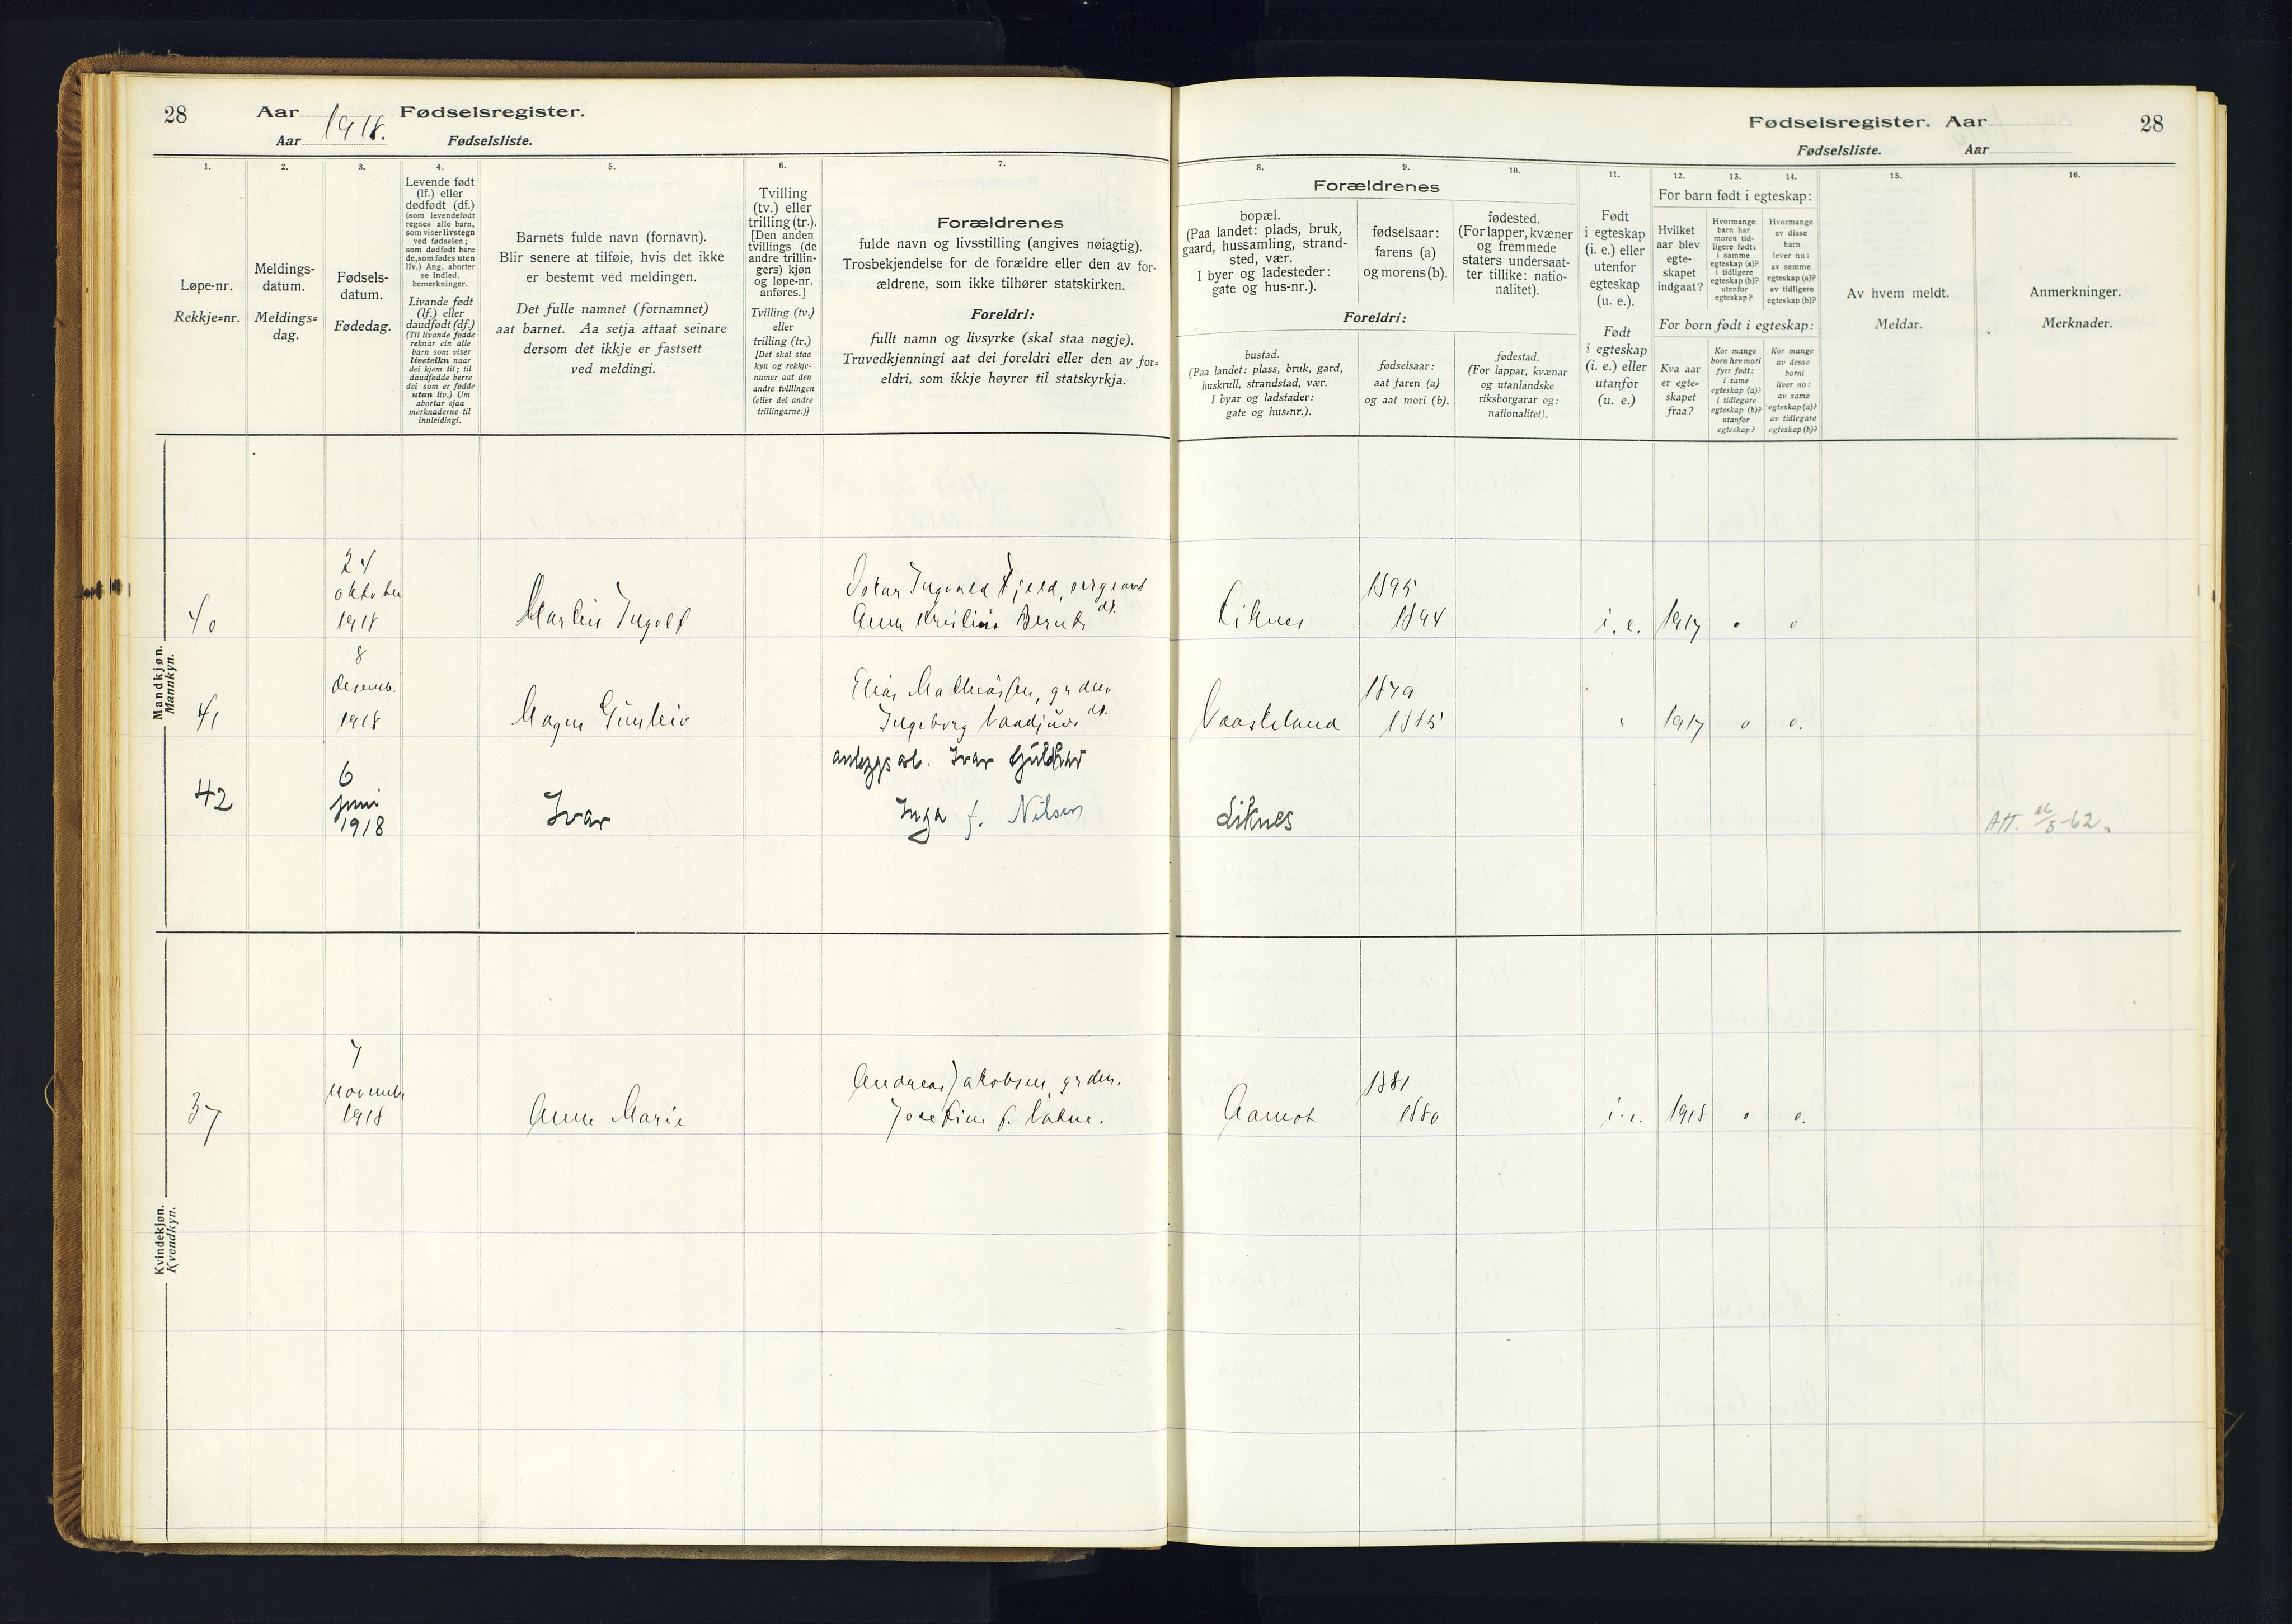 28
Aar 1918. Fødselsregister.
Aar Fødselsliste.
1.
2.
3.
4.
5.
6.
7.
Løpe-nr.
Rekkje=nr.
Meldings-
datum.
Meldings=
dag.
Fødsels-
datum.
Fødedag.
Levende født
(lf.) eller
dødfødt (df.)
(som levendefødt
regnes alle barn,
som viser livstegn
ved fødselen;
som dødfødt bare
de, som fødes uten
liv.) Ang. aborter
se indled.
bemerkninger.
Livande født
(lf.) eller
daudfødt (df.)
(Til livande fødde
reknar ein alle
barn som viser
livsteikn naar
dei kjem til; til
daudfødde berre
dei som er fødde
utan liv.) Um
abortar sjaa
merknaderne til
innleidingi.
Barnets fulde navn (fornavn).
Blir senere at tilføie, hvis det ikke
er bestemt ved meldingen.
Det fulle namnet (fornamnet)
aat barnet. Aa setja attaat seinare
dersom det ikkje er fastsett
ved meldingi.
Tvilling
(tv.) eller
trilling (tr.).
[Den anden
tvillings (de
andre trillin-
gers) kjøn
og løpe-nr.
anføres.]
Tvilling (tv.)
eller
trilling (tr.)
[Det skal staa
kyn og rekkje-
numer aat den
andre tvillingen
(eller dei andre
trillingarne.)]
Forældrenes
fulde navn og livsstilling (angives nøiagtig).
Trosbekjendelse for de forældre eller den av for-
ældrene, som ikke tilhører statskirken.
Foreldri:
fullt namn og livsyrke (skal staa nøgje).
Truvedkjenningi aat dei foreldri eller den av for=
eldri, som ikkje høyrer til statskyrkja.
Mandkjøn.
Mannkyn.
40
24
oktober
1918
Martin Ingolf
Oskar Ingvald Fjeld, sergeant
Anna Kristine Berntsdt.
41
8
desemb.
1918
Magne Gunleiv
Elias Mathiassen, grdm.
Ingeborg dt.
42
6
juni
1918
Ivar
anleggsarb. Ivar
Inga f. Nilsen
Kvindekjøn.
Kvendkyn.
37
7
novemb.
1918
Anne Marie
Andreas Jakobsen, grdm.
Josefine f. Vatne.
Fødselsregister. Aar
28
Fødselsliste. Aar
8.
9.
10.
11.
12.
13.
14.
15.
16.
Forældrenes
bopæl.
(Paa landet: plads, bruk,
gaard, hussamling, strand-
sted, vær.
I byer og ladesteder:
gate og hus-nr.).
fødselsaar:
farens (a)
og morens (b).
fødested.
(For lapper, kvæner
og fremmede
staters undersaat-
ter tillike: natio-
nalitet).
Foreldri:
bustad.
(Paa landet: plass, bruk, gard,
huskrull, strandstad, vær.
I byar og ladstader:
gate og hus=nr.).
fødselsaar:
aat faren (a)
og aat mori (b).
fødestad.
(For lappar, kvænar
og utanlandske
riksborgarar og:
nationalitet).
Født
i egteskap
(i. e.) eller
utenfor
egteskap
(u. e.).
Født
i egteskap
(i. e.) eller
utanfor
egteskap
(u. e.)
For barn født i egteskap:
Hvilket
aar blev
egte-
skapet
indgaat?
Hvormange
barn har
moren tid-
ligere født:
i samme
egteskap (a)?
i tidligere
egteskap (b)?
utenfor
egteskap?
Hvormange
av disse
barn
lever nu:
av samme
egteskap (a)?
av tidligere
egteskap (b)?
For born født i egteskap:
Kva aar
er egte=
skapet
fraa?
Kor mange
born hev mori
fyrr født:
i same
egteskap (a)?
i tidlegare
egteskap (b)?
utanfor
egteskap?
Kor mange
av desse
borni
liver no:
av same
egteskap (a)?
av tidlegare
egteskap (b)?
Av hvem meldt.
Meldar.
Anmerkninger.
Merknader.
Liknes
1895
1894
i. e.
1917
0
0
1879
1885
"
1917
0
0.
Liknes
Att. 26/5-62.
Aamot
1881
1880
i. e.
1918
0
0.